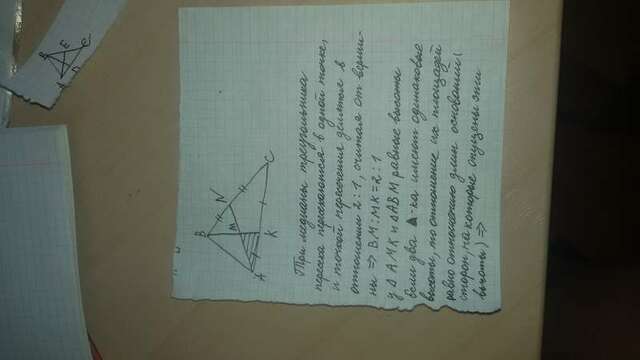 B
N
M
A
K
C
Три медианы треугольника
пересека пересекаются в одной точке,
и точкой пересечения делятся в
отношении 2:1, считая от верши-
ны => BM:MK=2:1
У ΔAMK и ΔABM равные высоты
Если два Δ-ка имеют одинаковые
высоты, то отношение их площадей
равно отношению длин оснований (
сторон, на которые опущены эти
высоты) =>
B
E
C
A
D